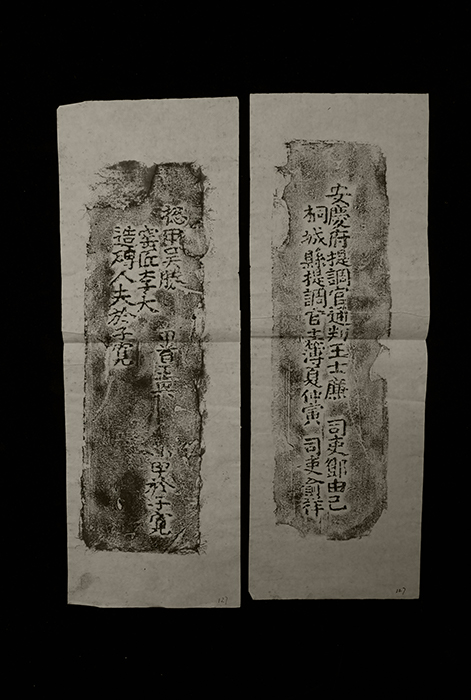 安慶府提調官通判王士廉 司吏鄒由己
桐城縣提調官主簿夏仲寅 司吏俞祥
總甲吳勝 甲首汪興 甲於子寬
窑匠李大
造磚人夫於子寬